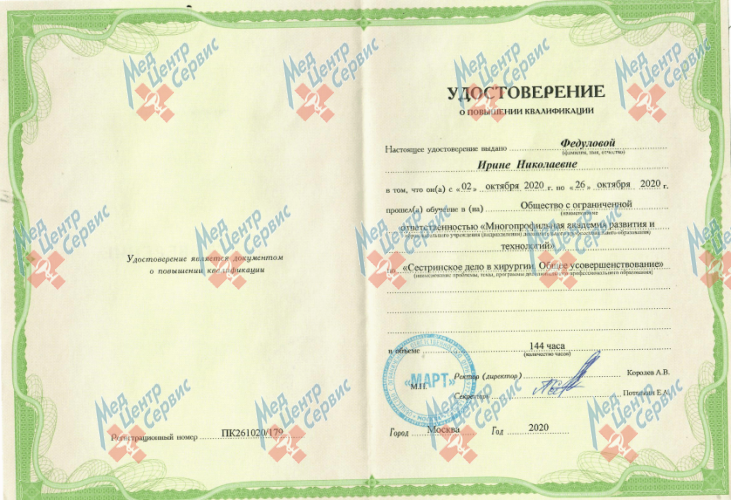 Удостоверение является документом
о повышении квалификации
Регистрационный номер ПК261020/179
УДОСТОВЕРЕНИЕ
О ПОВЫШЕНИИ КВАЛИФИКАЦИИ
Настоящее удостоверение выдано Федуловой
(фамилия, имя, отчество)
Ирине Николаевне
в том, что он(а) с «02» октября 2020 г. по «26» октября 2020 г.
прошел(а) обучение в (на) Общество с ограниченной
(наименование
ответственностью «Многопрофильная академия развития и
технологий»
по «Сестринское дело в хирургии. Общее усовершенствование»
(наименование проблемы, темы, программы дополнительного профессионального образования)
в объеме 144 часа
(количество часов)
«МАРТ»
М.П.
Ректор (директор) Королев А.В.
Секретарь
Город Москва Год 2020
Мед Центр Сервис